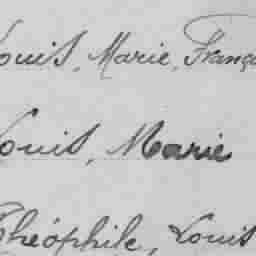 Louis, Marie, Franço
Louis, Marie
Théophile, Louis